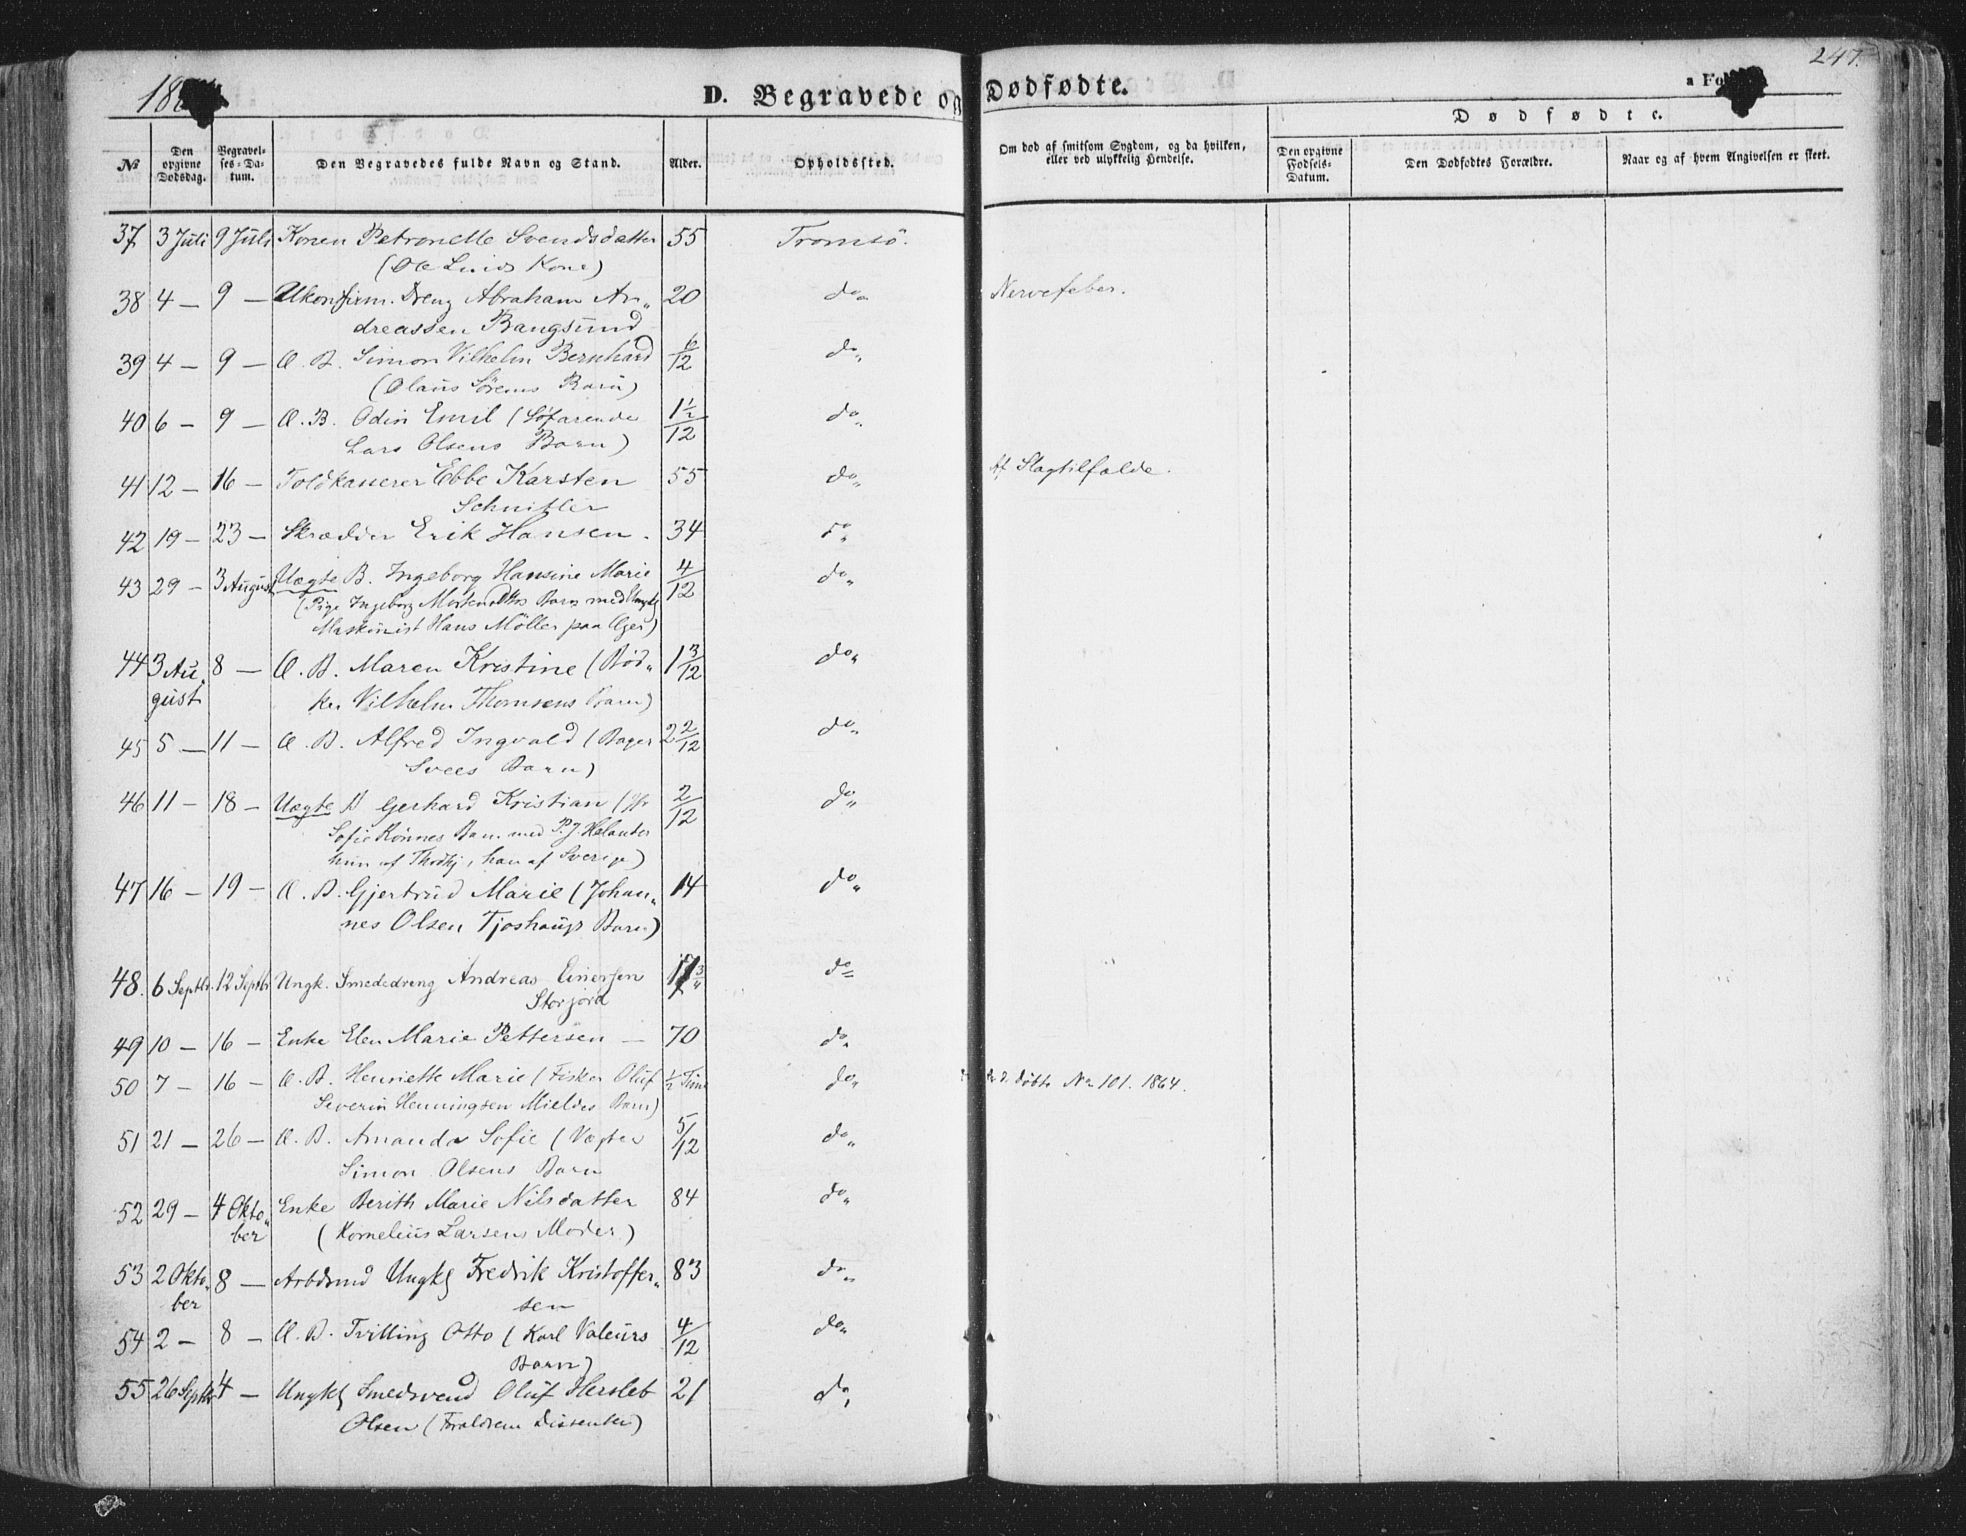 247.
D. Begravede og Dødfødte.
No
Den opgivne Dødsdag.
Begravelses-Datum.
Den Begravedes fulde Navn og Stand.
Alder.
Opholdssted.
Om død af smitsom Sygdom, og da hvilken, eller ved ulykkelig Hendelse.
Dødfødte.
Den opgivne Fødsels-Datum.
Den Dødfødtes Forældre.
Naar og af hvem Angivelsen er skeet.
37 3 Juli 9 Juli Konen Petronelle Svendsdatter 55 Tromsö.
(Ole Kone)
38 4 — 9 — Ukonfirm. Dreng Abraham An„ 20 do„ Nervefeber.
dreassen Bangsund
39 4 — 9 — Æ. B. Simon Vilhelm Bernhard 6/12 do„
(Olaus Sörens Barn)
40 6 — 9 — Æ. B. Odin Emil (Söfarende 1 1/2/12 do„
Lars Olsens Barn)
41 12 — 16 — Toldkasserer Ebbe Karsten 55 do„ Af Slagtilfælde.
Schnitler
42 19 — 23 — Skrædder Erik Hansen. 34 do„
43 29 — 3 August Uægte B. Ingeborg Hansine Marie 4/12 do„
(Pige Ingeborg Barn med Ungk
Maskinist Hans Möller paa Æger)
44 3 Au„ 8 — Æ. B. Maren Kristine (Bød„ 1 3/12 do„
gust ker Vilhelm Thomsens Barn)
45 5 — 11 — Æ. B. Alfred Ingvald (Bager 2 2/12 do„
Svees Barn)
46 11 — 18 — Uægte B Gerhard Kristian (P 2/12 do„
Sofie Rönnes Barn med P. J. Helander
hun af Throndhj, han af Sverige)
47 16 — 19 — Æ. B. Gjertrud Marie (Johan„ 14 do„
nes Olsen Tjoshaugs Barn)
48. 6 Septbr. 12 Septbr Ungk. Smededreng Andreas Einersen do„
Storjord
49 10 — 16 — Enke Elen Marie Pettersen — 70 do„
50 7 — 16 — Æ. B. Henriette Marie (Fisker Oluf 1/2 Time do„ døbte No 101. 1864.
Severin Henningsen Mieldes Barn)
51 21 — 26 — Æ. B. Amanda Sofie (Vægter 5/12 do„
Simon Olsens Barn
52 29 — 4 Okto„ Enke Berith Marie Nilsdatter 84 do„
ber (Kornelius Larsens Moder)
53 2 Okto„ 8 — Arbdsmd Ungkl Fredrik Kristoffer„ 83 do„
ber sen
54 2 — 8 — Æ. B. Tvilling Otto (Karl Valeurs 4/12 do„
Barn)
55 26 Septbr 4 — Ungkl Smedsvend Oluf Hersleb 21 do„
Olsen (Forældrene Dissenter)